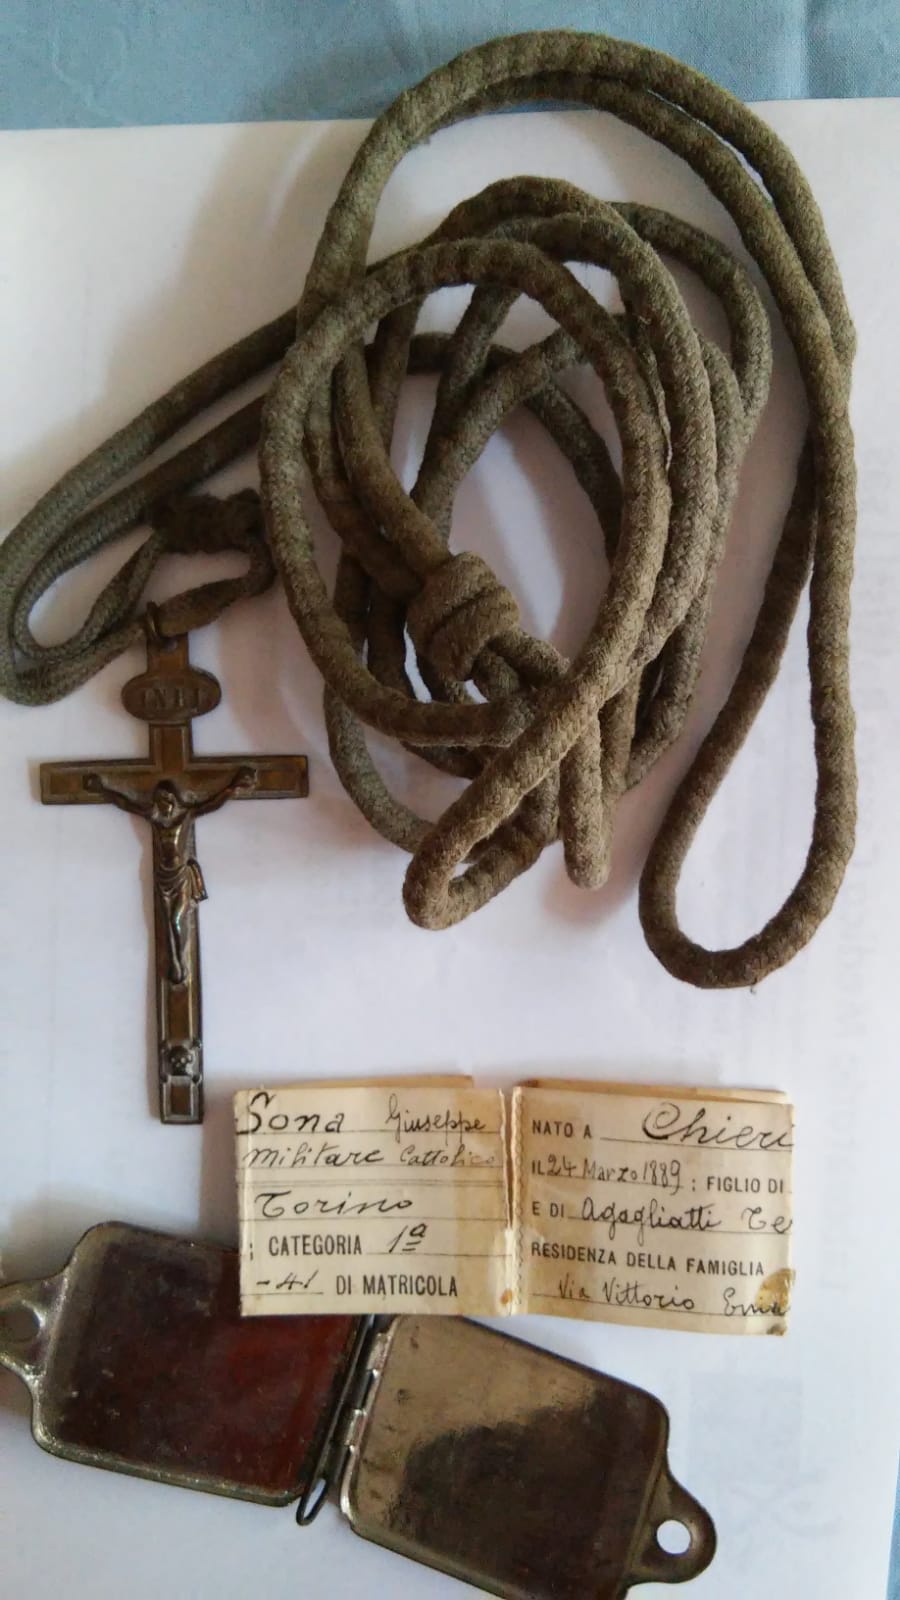 INRI
Sona Giuseppe
militare Cattolico
Torino
; CATEGORIA 1ª
-41 DI MATRICOLA
NATO A Chieri
IL 24 Marzo 1889 : FIGLIO DI
E DI Agagliatti Te
RESIDENZA DELLA FAMIGLIA
Via Vittorio Ema